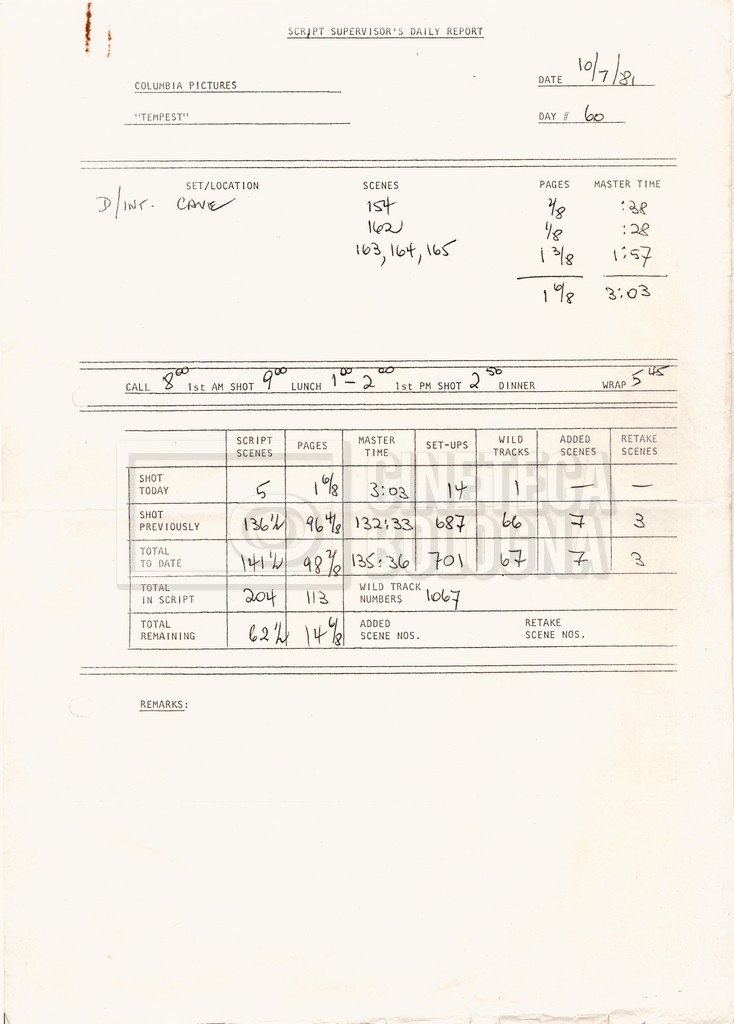 SCRIPT SUPERVISOR'S DAILY REPORT
COLUMBIA PICTURES
DATE 10/7/81
"TEMPEST"
DAY # 60
SET/LOCATION SCENES PAGES MASTER TIME
D/INT. CAVE 154 2/8 :38
162 1/8 :28
163, 164, 165 1 3/8 1:57
1 6/8 3:03
CALL 8 00 1st AM SHOT 9 00 LUNCH 1 00 - 2 00 1st PM SHOT 2 50 DINNER WRAP 5 45
SCRIPT SCENES PAGES MASTER TIME SET-UPS WILD TRACKS ADDED SCENES RETAKE SCENES
SHOT TODAY 5 1 6/8 3:03 14 1 — —
SHOT PREVIOUSLY 136 1/2 96 4/8 132:33 687 66 7 3
TOTAL TO DATE 141 1/2 98 2/8 135:36 701 67 7 3
TOTAL IN SCRIPT 204 113 WILD TRACK NUMBERS 1067
TOTAL REMAINING 62 1/2 14 6/8 ADDED SCENE NOS. RETAKE SCENE NOS.
REMARKS:
CINETECA
BOLOGNA